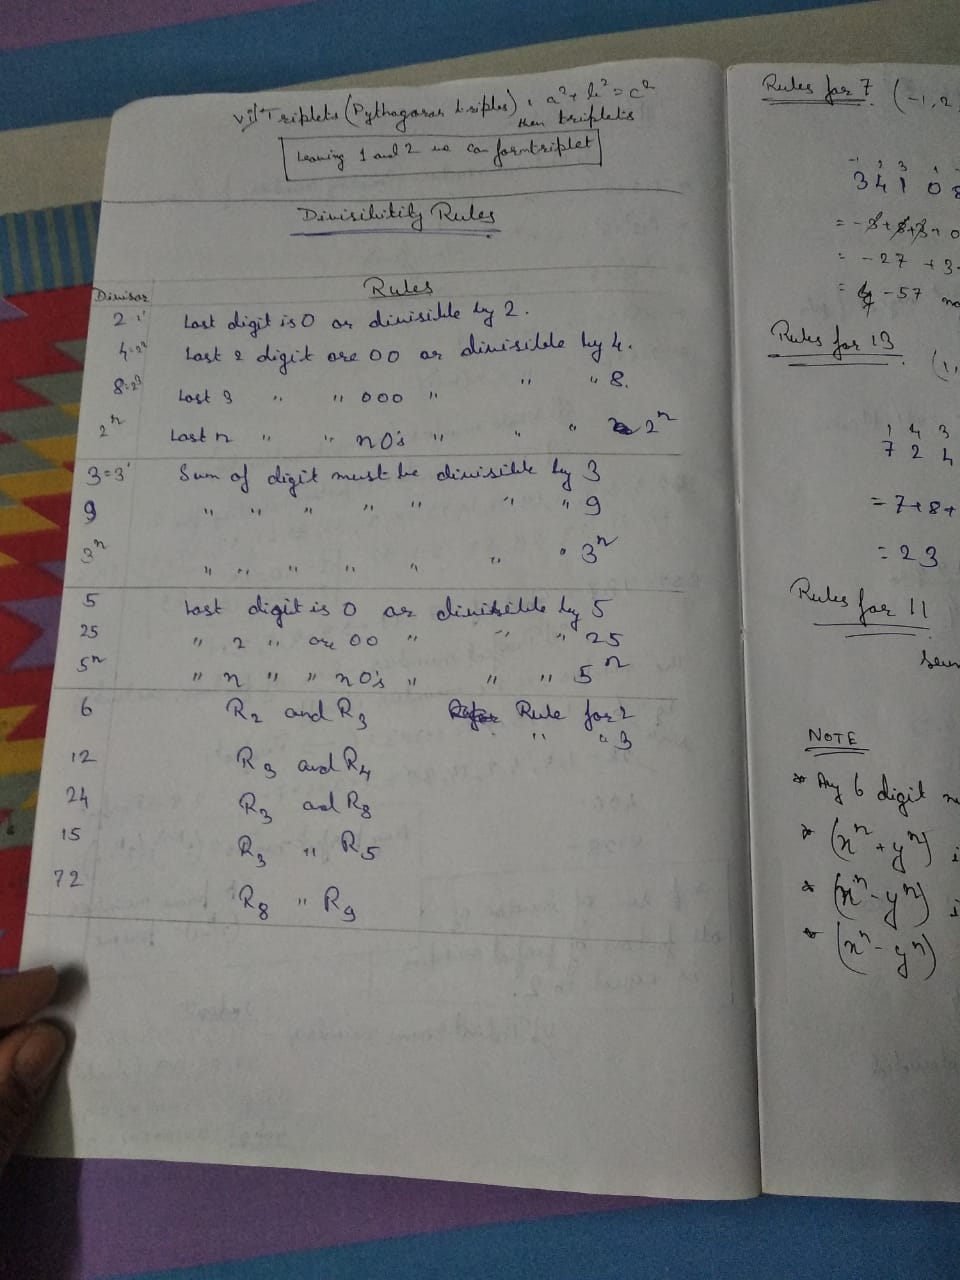 vii) Triplets (Pythagoras triples), a² + b² = c²
then triplets
Leaving 1 and 2 we can form triplet
Divisibility Rules
Divisor Rules
2¹ Last digit is 0 or divisible by 2.
4=2² Last 2 digit are 00 or divisible by 4.
8=2³ Last 3 " " 000 " " " 8.
2ⁿ Last n " " n 0's " " " 2ⁿ
3=3¹ Sum of digit must be divisible by 3
9 " " " " " " " 9
3ⁿ " " " " " " " 3ⁿ
5 Last digit is 0 or divisible by 5
25 " 2 " are 00 " " " 25
5ⁿ " n " " n 0's " " " 5ⁿ
6 R₂ and R₃ Rule for 2
" " 3
12 R₃ and R₄
24 R₃ and R₈
15 R₃ " R₅
72 R₈ " R₉
Rules for 7. (-1, 2
-1 2 3 1
3 4 1 0 8
= -3 + 8 + 3 + 0
= -27 + 3
= -57
Rules for 13
(1,
1 4 3
7 2 4
= 7+8+
= 23
Rules for 11
Sum
NOTE
* Any 6 digit
* (xⁿ + yⁿ) i
* (xⁿ - yⁿ) i
* (xⁿ - yⁿ)